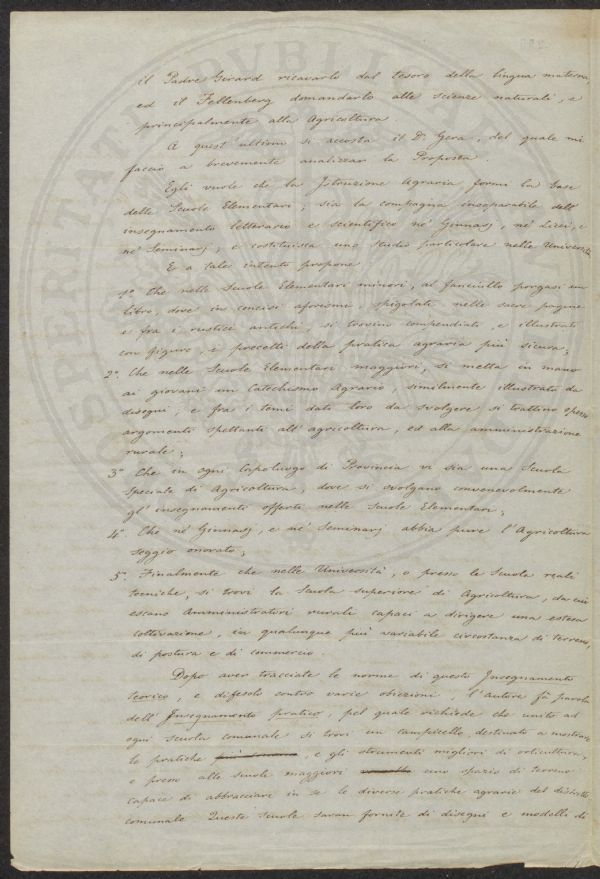 il Padre Girard ricavarlo dal tesoro della lingua materna,
ed il Fellenberg domandarlo alle scienze naturali, e
principalmente alla Agricoltura.
A quest'ultimo si accosta il Dr Gera, del quale mi
faccio a brevemente analizzar la Proposta.
Egli vuole che la Istruzione Agraria formi la base
delle Scuole Elementari; sia la compagna inseparabile dell'
insegnamento letterario e scientifico ne' Ginnasj, ne' Licei, e
ne' Seminarj; e costituisca uno studio particolare nelle Università.
E a tale intento propone
1º Che nelle Scuole Elementari minori, al fanciullo porgasi un
libro, dove in concisi aforismi, spigolati nelle sacre pagine
e fra i rustici antichi, si trovino compendiati, e illustrati
con figure, i precetti della pratica agraria più sicura;
2º Che nelle Scuole Elementari maggiori, si metta in mano
ai giovani un Catechismo Agrario, similmente illustrato da
disegni, e fra i temi dati loro da svolgere si trattino spesso
argomenti spettanti all'agricoltura, ed alla amministrazione
rurale;
3º Che in ogni Capoluogo di Provincia vi sia una Scuola
speciale di Agricoltura, dove si svolgano convenevolmente
gl'insegnamenti offerti nelle Scuole Elementari;
4º Che ne' Ginnasj, e ne' Seminarj abbia pure l'Agricoltura
seggio onorato;
5º Finalmente che nelle Università, o presso le Scuole reali
tecniche, si trovi la Scuola superiore di Agricoltura, da cui
escano Amministratori rurali capaci a dirigere una estesa
coltivazione, in qualunque più variabile circostanza di terreno,
di postura e di commercio.
Dopo aver tracciate le norme di questo Insegnamento
teorico, e difesolo contro varie obiezioni, l'autore fa parola
dell'Insegnamento pratico, pel quale richiede che unito ad
ogni scuola comunale si trovi un campicello, destinato a mostrare
le pratiche, e gli strumenti migliori di orticultura,
e presso alle scuole maggiori uno spazio di terreno
capace di abbracciare in se le diverse pratiche agrarie del distretto
comunale. Queste Scuole saran fornite di disegni e modelli di